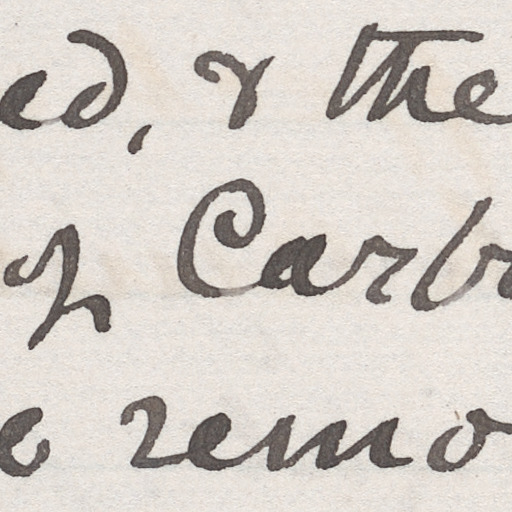 ed, & the
of Carb
o remo